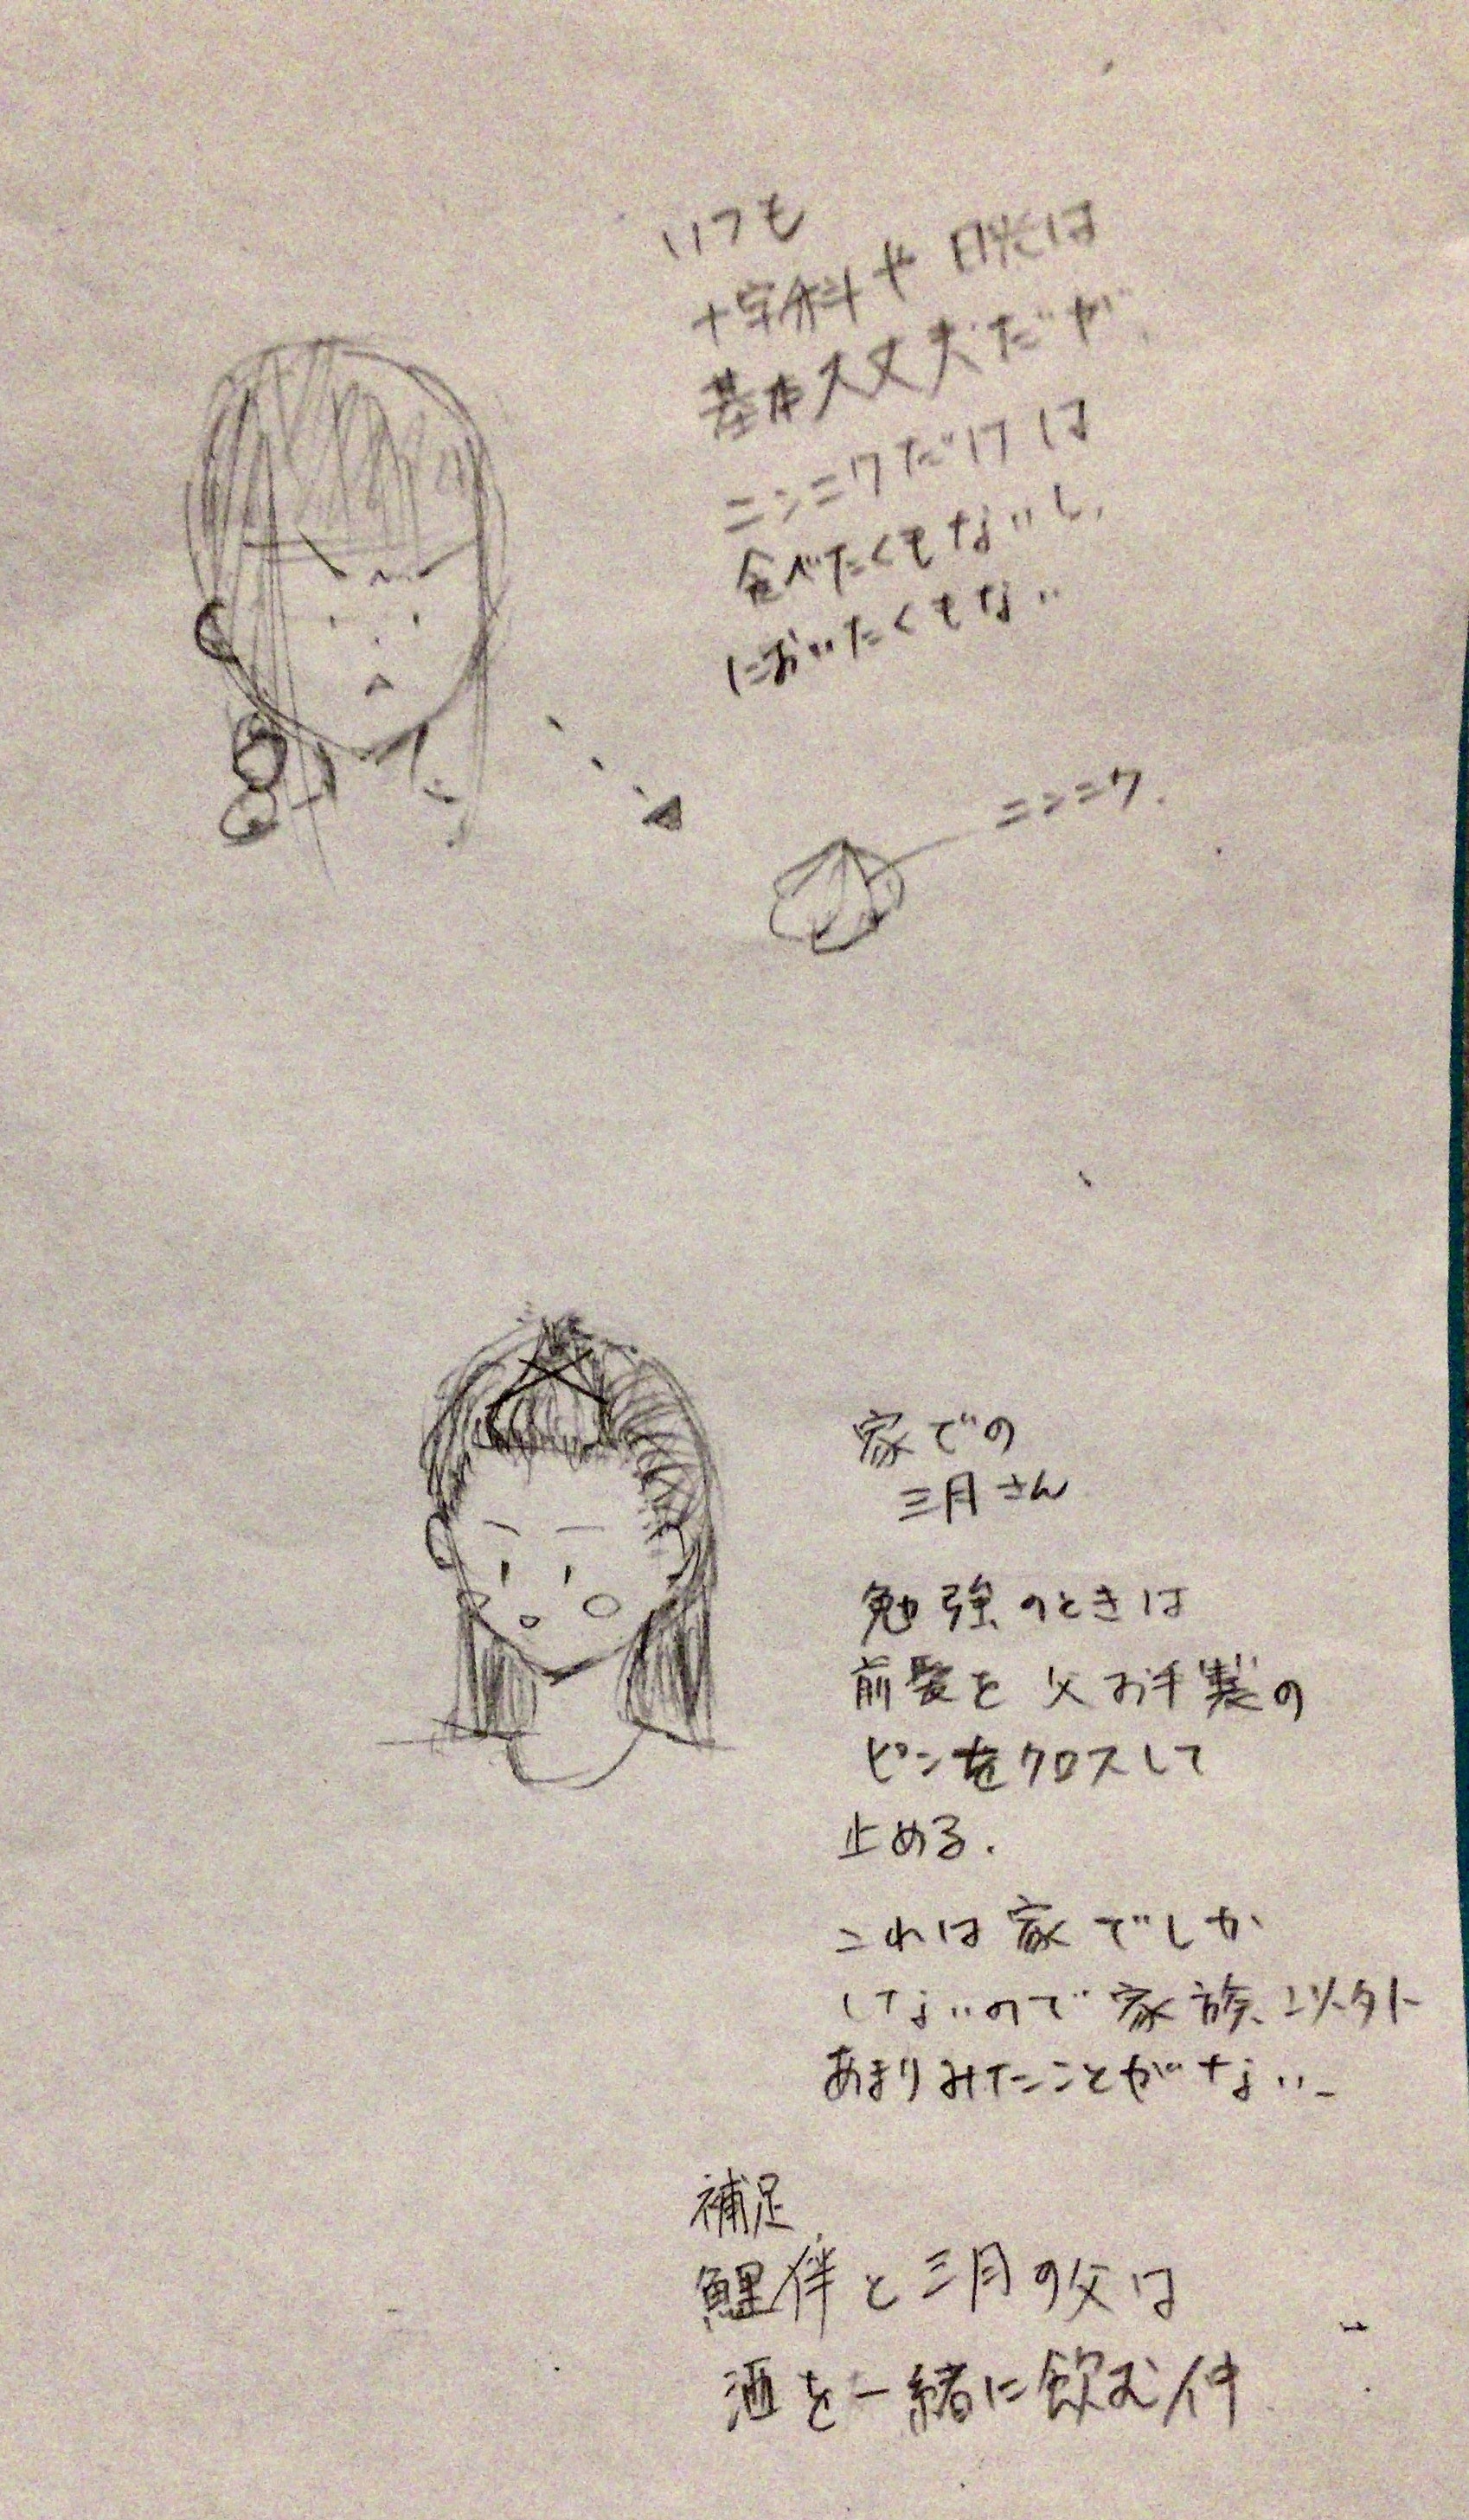 いつも
十字科や日光は
基本大丈夫だが、
ニンニクだけは
食べたくもないし、
においたくもない
ニンニク.
家での
三月さん
勉強のときは
前髪を父お手製の
ピンをクロスして
止める.
これは家でしか
しないので家族以外
あまりみたことがない
補足
鯉伴と三月の父は
酒を一緒に飲む仲